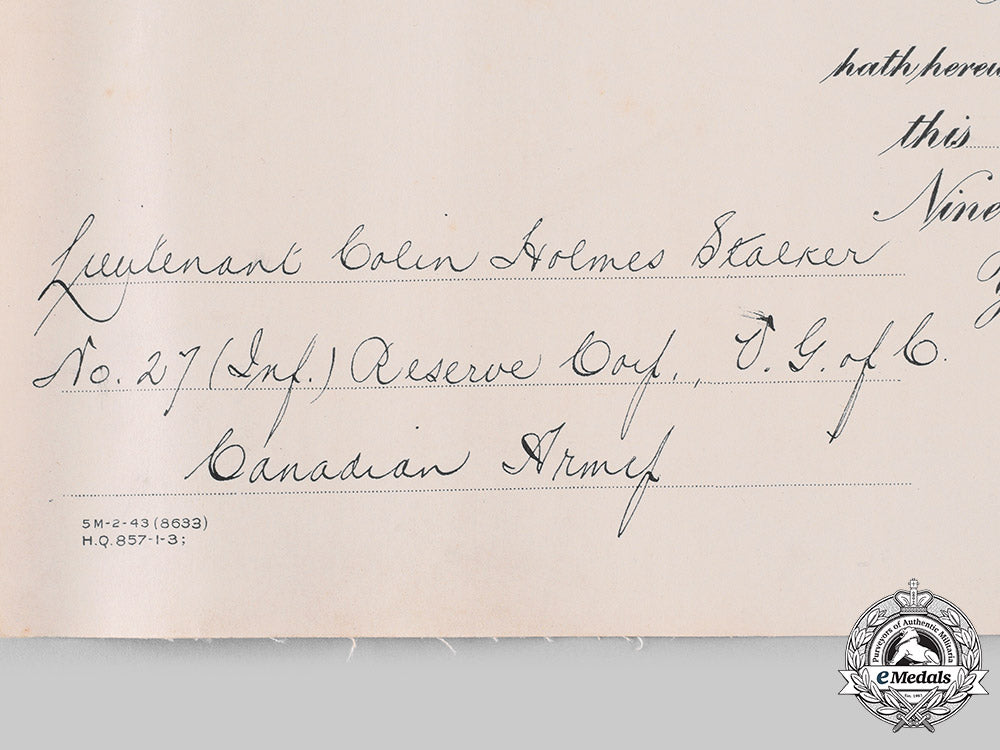 hath hereu
this
Nine
Lieutenant Colin Holmes Stalker
No. 27 (Inf.) Reserve Coy., V. G. of C.
Canadian Army
5M-2-43 (8633)
H.Q. 857-1-3;
Purveyors of Authentic Militaria
eMedals